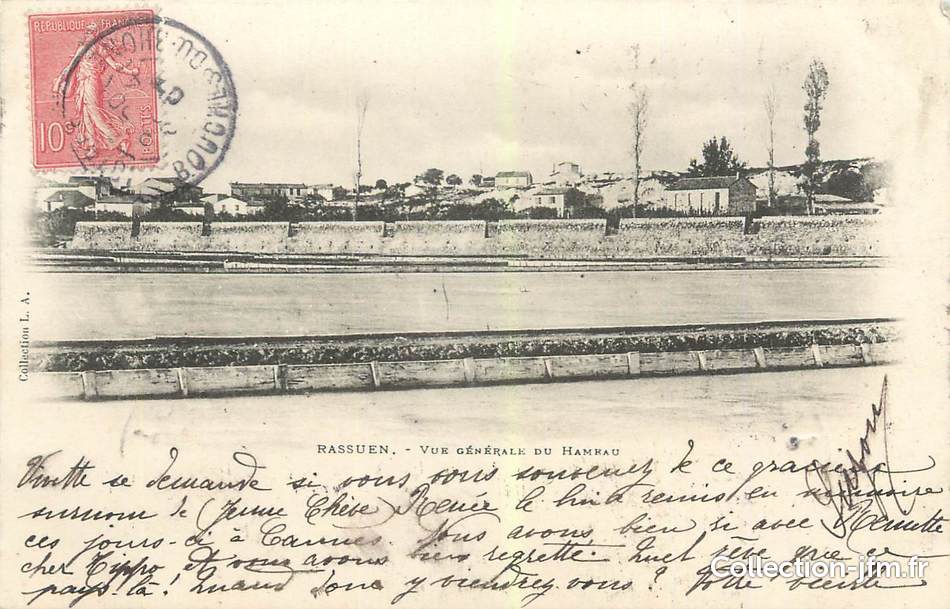 RÉPUBLIQUE FRANÇAISE
10c
POSTES
BOUCHES-DU-RHONE
Collection L. A.
RASSUEN. - VUE GÉNÉRALE DU HAMEAU
Vivette se demande si vous vous souvenez de ce gracieux
surnom de (Jeune Chève) Renée le lui a remis en mémoire
ces jours-ci à Cannes. Nous avons bien ri avec Nenette
cher Tippo et vous avons bien regretté. Quel rêve que ce
pays là! Quand donc y viendrez vous? Votre
Collection-jfm.fr